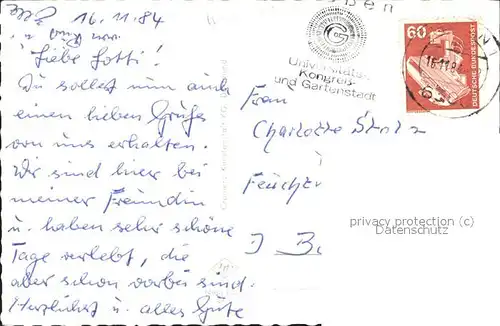 16.11.84
Liebe Lotti!
Du sollst nun auch
einen lieben Gruß
von uns erhalten.
Wir sind hier bei
meiner Freundin
u. haben sehr schöne
Tage verlebt, die
aber schon vorbei sind.
Herzlichst u. alles Gute
Universitäts-
Kongreß-
und Gartenstadt
60
DEUTSCHE BUNDESPOST
16.11.84
630
Frau
Charlotte
Feucht
privacy protection (c)
Datenschutz